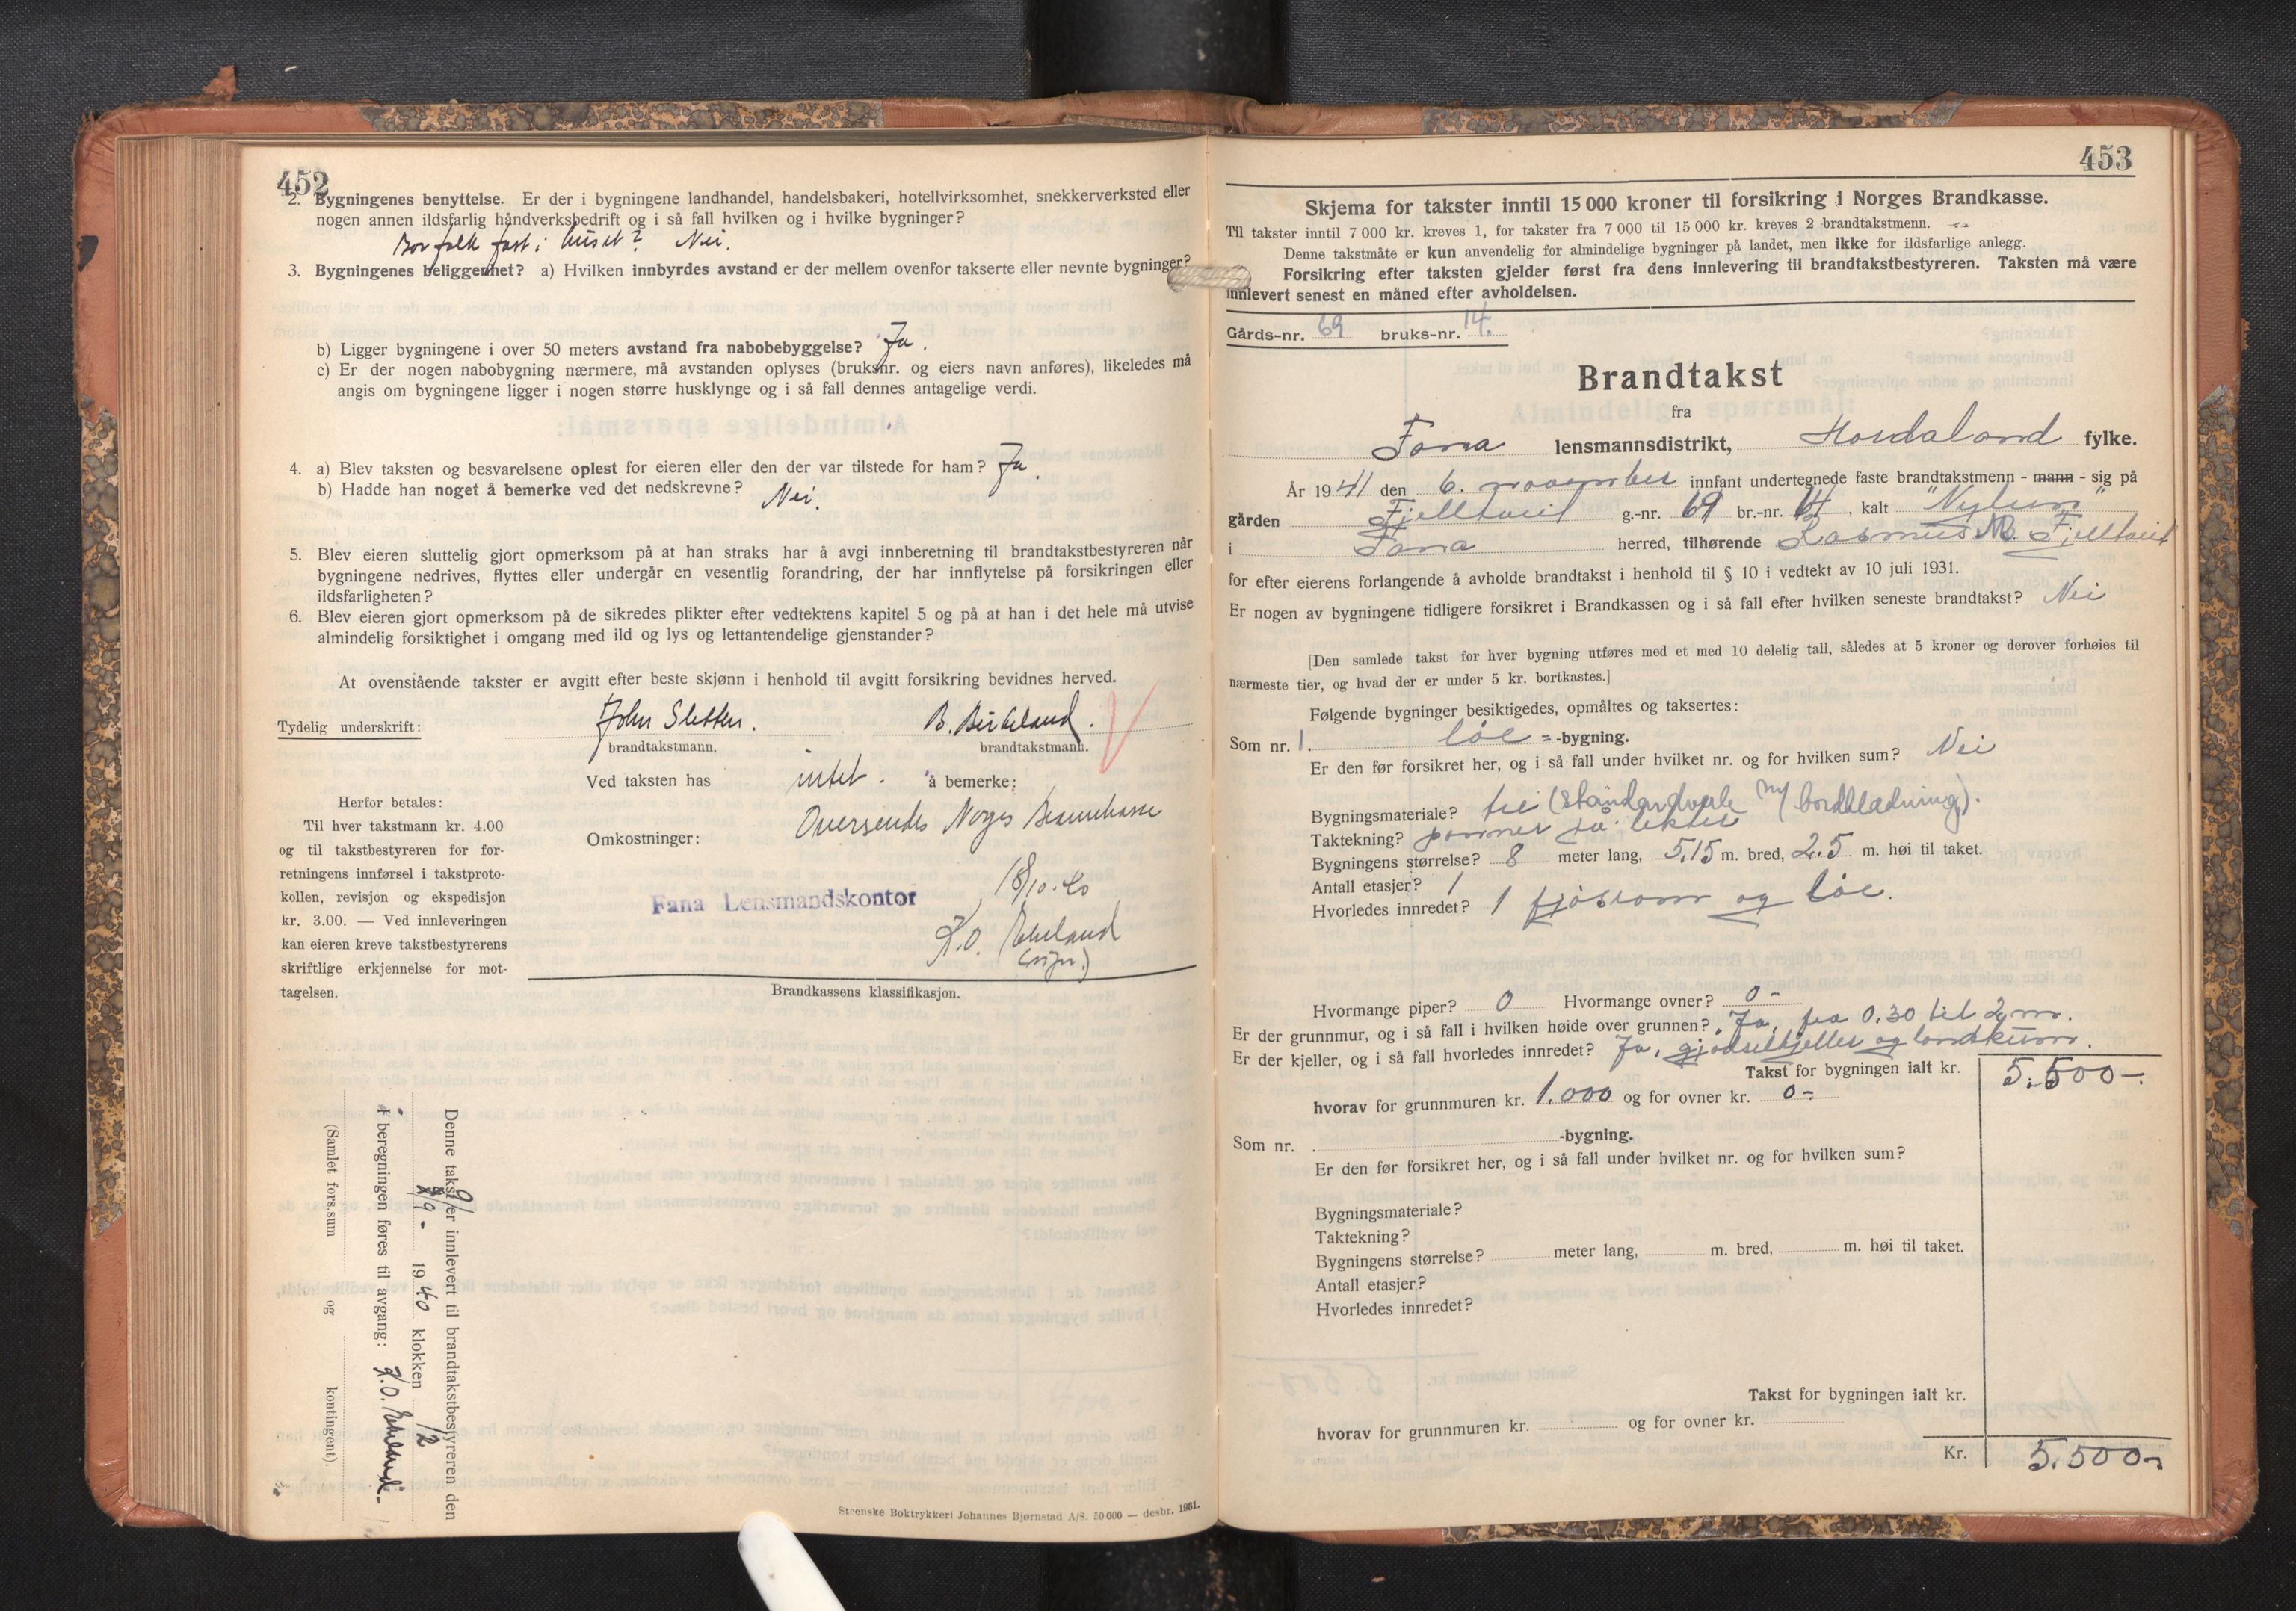 452
2. Bygningenes benyttelse. Er der i bygningene landhandel, handelsbakeri, hotellvirksomhet, snekkerverksted eller
nogen annen ildsfarlig håndverksbedrift og i så fall hvilken og i hvilke bygninger?
Bor folk fast i huset? Nei.
3. Bygningenes beliggenhet? a) Hvilken innbyrdes avstand er der mellem ovenfor takserte eller nevnte bygninger?
b) Ligger bygningene i over 50 meters avstand fra nabobebyggelse? Ja.
c) Er der nogen nabobygning nærmere, må avstanden oplyses (bruksnr. og eiers navn anføres), likeledes må
angis om bygningene ligger i nogen større husklynge og i så fall dennes antagelige verdi.
4. a) Blev taksten og besvarelsene oplest for eieren eller den der var tilstede for ham? Ja.
b) Hadde han noget å bemerke ved det nedskrevne? Nei.
5. Blev eieren sluttelig gjort opmerksom på at han straks har å avgi innberetning til brandtakstbestyreren når
bygningene nedrives, flyttes eller undergår en vesentlig forandring, der har innflytelse på forsikringen eller
ildsfarligheten?
6. Blev eieren gjort opmerksom på de sikredes plikter efter vedtektens kapitel 5 og på at han i det hele må utvise
almindelig forsiktighet i omgang med ild og lys og lettantendelige gjenstander?
At ovenstående takster er avgitt efter beste skjønn i henhold til avgitt forsikring bevidnes herved.
Tydelig underskrift: John Sletten. B. Birkeland.
brandtakstmann. brandtakstmann.
Ved taksten has intet. å bemerke:
Oversendes Norges Brannkasse
Omkostninger:
Herfor betales:
Til hver takstmann kr. 4.00
og til takstbestyreren for for-
retningens innførsel i takstproto-
kollen, revisjon og ekspedisjon
kr. 3.00. — Ved innleveringen
kan eieren kreve takstbestyrerens
skriftlige erkjennelse for mot-
tagelsen.
Fana Lensmandskontor, 18/10-40
K.O. Ekeland
(sign.)
Brandkassens klassifikasjon.
Denne takst er innlevert til brandtakstbestyreren den
9/9- 1940 klokken 12
i beregningen føres til avgang: K.O. Ekeland.
(Samlet fors.sum og kontingent).
Steenske Boktrykkeri Johannes Bjørnstad A/S. 50 000 — desbr. 1931.
453
Skjema for takster inntil 15 000 kroner til forsikring i Norges Brandkasse.
Til takster inntil 7 000 kr. kreves 1, for takster fra 7 000 til 15 000 kr. kreves 2 brandtakstmenn.
Denne takstmåte er kun anvendelig for almindelige bygninger på landet, men ikke for ildsfarlige anlegg.
Forsikring efter taksten gjelder først fra dens innlevering til brandtakstbestyreren. Taksten må være
innlevert senest en måned efter avholdelsen.
Gårds-nr. 69 bruks-nr. 14.
Brandtakst
fra
Fana lensmannsdistrikt, Hordaland fylke.
År 1941 den 6. november innfant undertegnede faste brandtakstmenn - mann - sig på
gården Fjelltveit g.-nr. 69 br.-nr. 14, kalt "Nylun"
i Fana herred, tilhørende Rasmus M. Fjelltveit
for efter eierens forlangende å avholde brandtakst i henhold til § 10 i vedtekt av 10 juli 1931.
Er nogen av bygningene tidligere forsikret i Brandkassen og i så fall efter hvilken seneste brandtakst? Nei
[Den samlede takst for hver bygning utføres med et med 10 delelig tall, således at 5 kroner og derover forhøies til
nærmeste tier, og hvad der er under 5 kr. bortkastes.]
Følgende bygninger besiktigedes, opmåltes og taksertes:
Som nr. 1. løe = -bygning.
Er den før forsikret her, og i så fall under hvilket nr. og for hvilken sum? Nei
Bygningsmateriale? tre (standardverk m/ bordkledning).
Taktekning? panner på lekter
Bygningens størrelse? 8 meter lang, 5,15 m. bred, 2.5 m. høi til taket.
Antall etasjer? 1
Hvorledes innredet? 1 fjøsrom og løe.
Hvormange piper? 0 Hvormange ovner? 0-
Er der grunnmur, og i så fall i hvilken høide over grunnen? Ja, fra 0.30 til 2 m.
Er der kjeller, og i så fall hvorledes innredet? Ja, gjødselkjeller og landkum.
Takst for bygningen ialt kr. 5.500-.
hvorav for grunnmuren kr. 1.000 og for ovner kr. 0-
Som nr. -bygning.
Er den før forsikret her, og i så fall under hvilket nr. og for hvilken sum?
Bygningsmateriale?
Taktekning?
Bygningens størrelse? meter lang, m. bred, m. høi til taket.
Antall etasjer?
Hvorledes innredet?
Takst for bygningen ialt kr.
hvorav for grunnmuren kr. og for ovner kr.
Kr. 5.500-